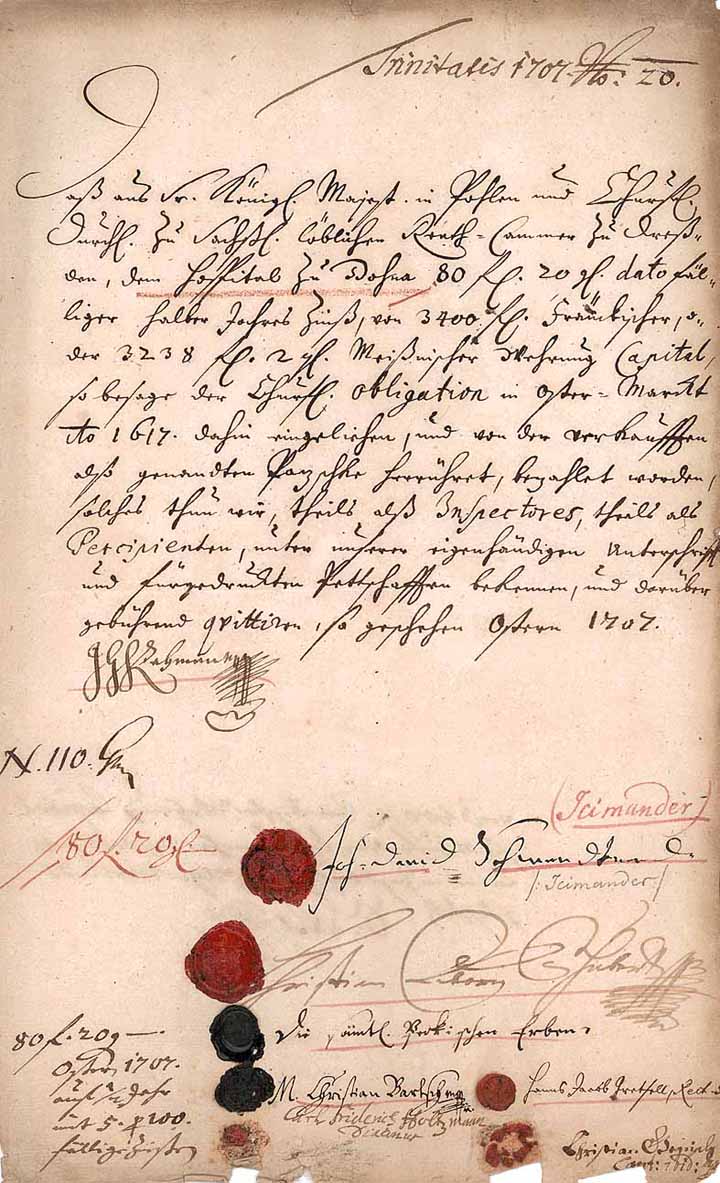 Trinitatis 1707. No: 20.
Daß aus Sr. Königl. Majest. in Pohlen und Churfl.
Durchl. zu Sachßl. löblichen Renth-Cammer zu Dreß-
den, dem Hospital zu Dohna 80 fl. 20 gl. dato fäl-
liger halber Jahres Zinß, von 3400 fl. Fränckischer, o-
der 3238 fl. 2 gl. Meißnischer Wehrung Capital,
so besage der Churfl. obligation in Oster-Marckt
Ao 1617. dahin eingeliehen, und von der verkaufften
alß genandten herrühret, bezahlet worden,
solches thun wir, theils alß Inspectores, theils als
Percipienten, unter unserer eigenhändigen Unterschrifft
und fürgedruckten Pettschafften bekennen, und darüber
gebührend qvittiren, so geschehen Ostern 1707.
Lehmann
N. 110.
(Icimander)
80 f. 20 gl.
Joh. David Schwerdtner D.
/: Icimander :/
Christian Schubert
80 f. 20 g
Die sämtl. Erben.
Ostern 1707.
auf 1/2 Jahr
M. Christian Bartsch
Hanns Jacob
mit 5. p 100.
Carl Friderich Holtzmann
fälligen Zinßen
Christian